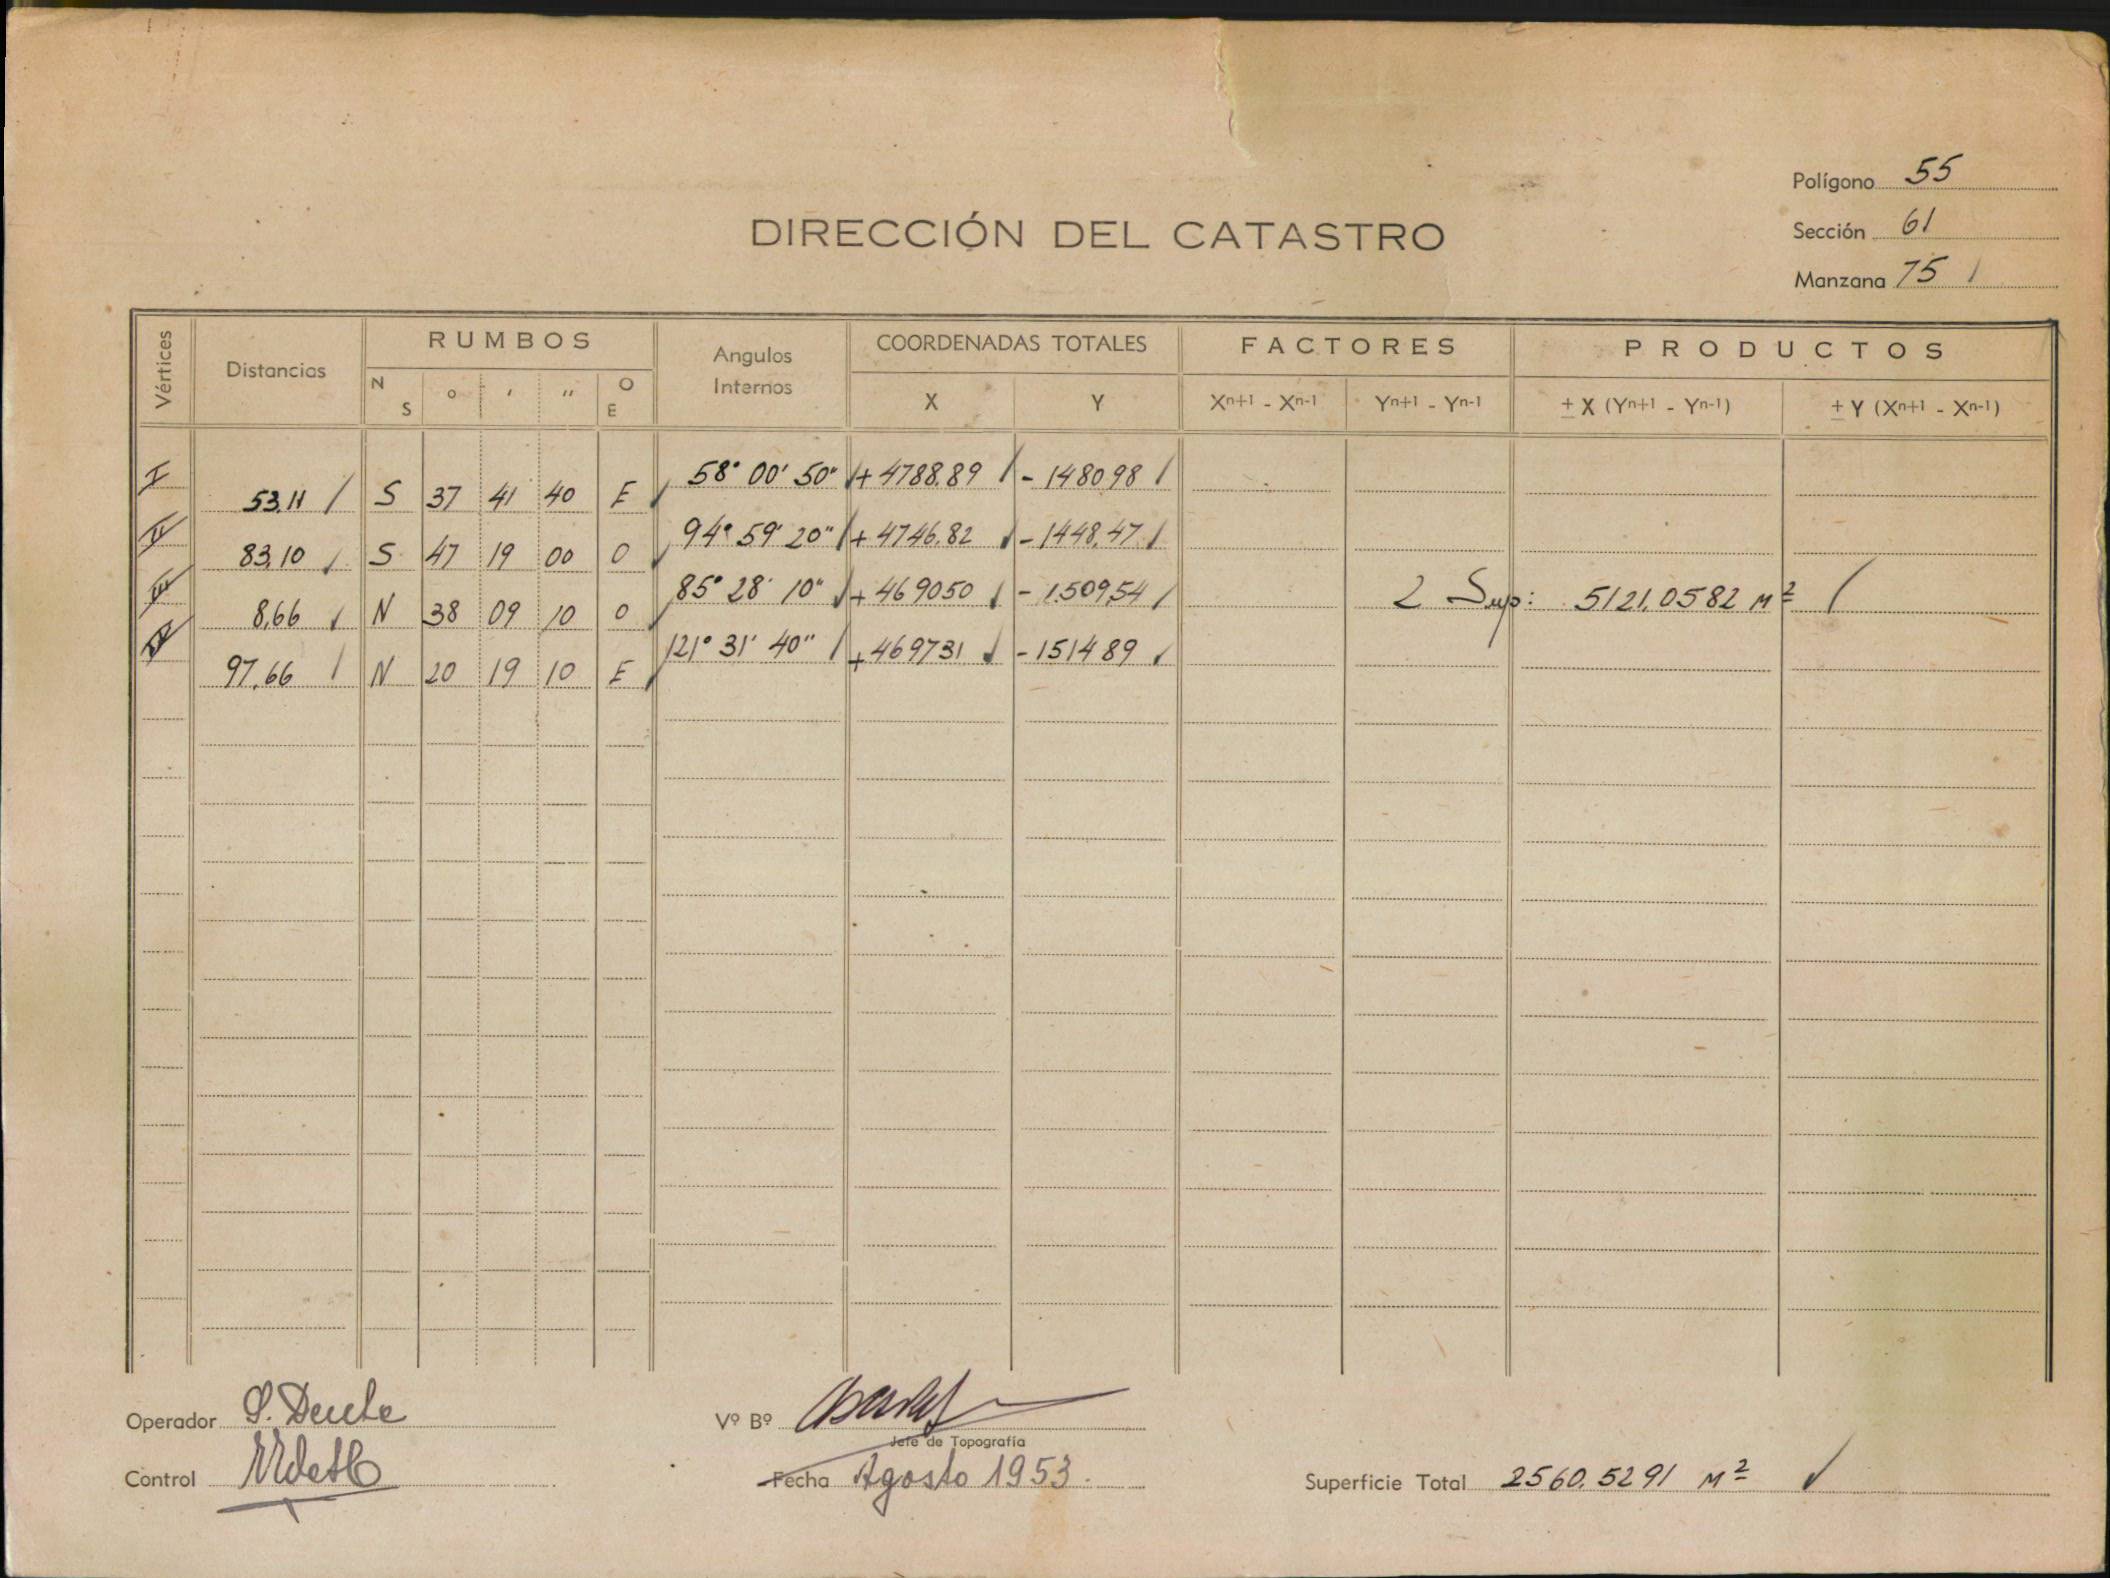 Polígono 55
Sección 61
Manzana 75
DIRECCIÓN DEL CATASTRO
Vértices Distancias RUMBOS Angulos Internos COORDENADAS TOTALES FACTORES PRODUCTOS
N S ° ' " O E X Y Xn+1 - Xn-1 Yn+1 - Yn-1 ± X (Yn+1 - Yn-1) ± Y (Xn+1 - Xn-1)
I 58° 00' 50" + 4788.89 - 148098
53,11 S 37 41 40 E
II 94° 59' 20" + 4746.82 - 1448.47
83,10 S 47 19 00 O
III 85° 28' 10" + 469050 - 1.509,54
8,66 N 38 09 10 O
2 Sup: 5121,0582 M²
IV 121° 31' 40" + 469731 - 151489
97,66 N 20 19 10 E
Operador
Vº Bº
Jefe de Topografía
Control
Fecha Agosto 1953.
Superficie Total 2560,5291 M²